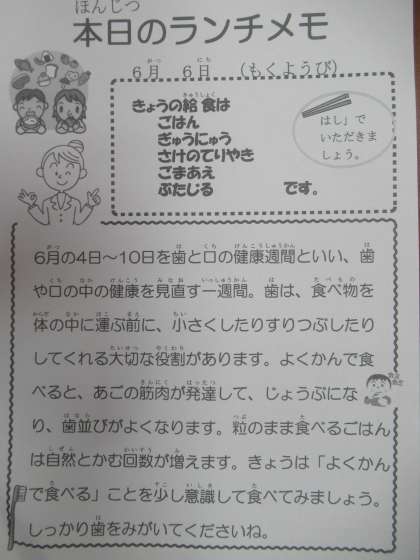 本日のランチメモ
6月 6日 (もくようび)
きょうの給食は
ごはん
ぎゅうにゅう
さけのてりやき
ごまあえ
ぶたじる です。
はし」で
いただきま
しょう。
6月の4日~10日を歯と口の健康週間といい、歯
や口の中の健康を見直す一週間。歯は、食べ物を
体の中に運ぶ前に、小さくしたりすりつぶしたり
してくれる大切な役割があります。よくかんで食
べると、あごの筋肉が発達して、じょうぶにな
り、歯並びがよくなります。粒のまま食べるごはん
は自然とかむ回数が増えます。きょうは「よくかん
で食べる」ことを少し意識して食べてみましょう。
しっかり歯をみがいてくださいね。